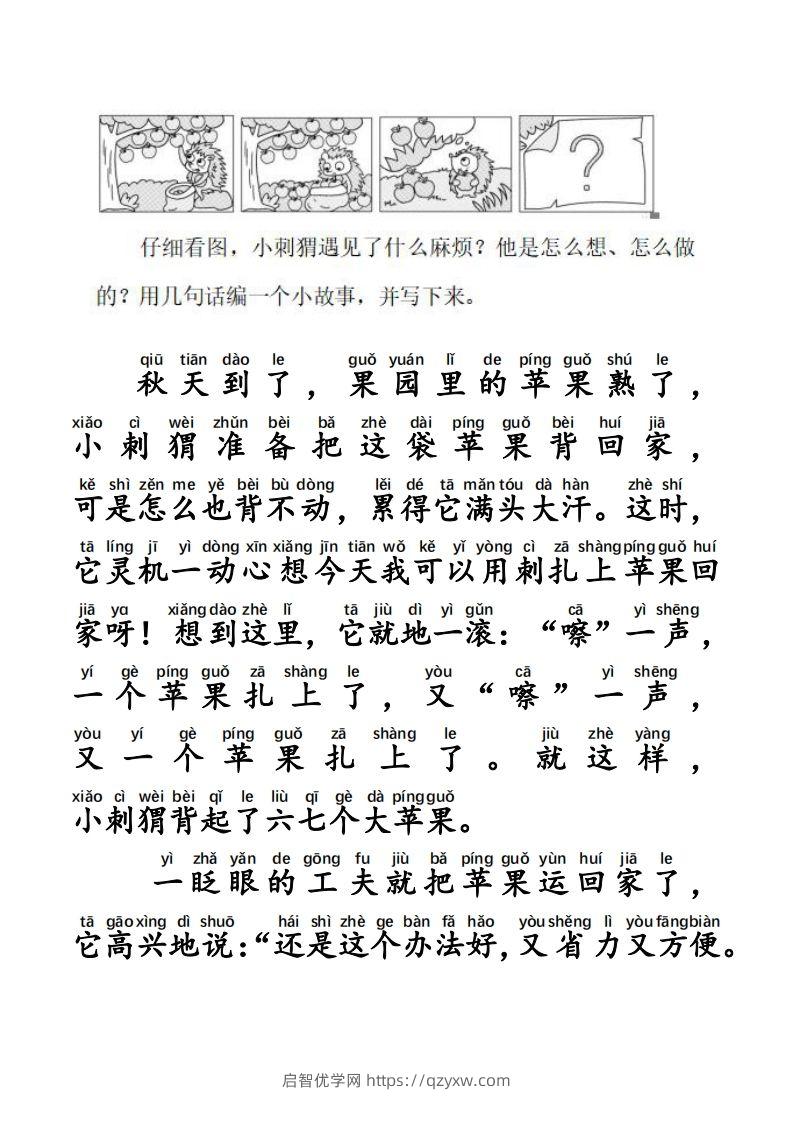 ?
仔细看图，小刺猬遇见了什么麻烦？他是怎么想、怎么做
的？用几句话编一个小故事，并写下来。
qiū tiān dào le guǒ yuán lǐ de píng guǒ shú le
秋天到了，果园里的苹果熟了，
xiǎo cì wèi zhǔn bèi bǎ zhè dài píng guǒ bèi huí jiā
小刺猬准备把这袋苹果背回家，
kě shì zěn me yě bèi bù dòng lěi dé tā mǎn tóu dà hàn zhè shí
可是怎么也背不动，累得它满头大汗。这时，
tā líng jī yì dòng xīn xiǎng jīn tiān wǒ kě yǐ yòng cì zā shàng píng guǒ huí
它灵机一动心想今天我可以用刺扎上苹果回
jiā ya xiǎng dào zhè lǐ tā jiù dì yì gǔn cā yì shēng
家呀！想到这里，它就地一滚：“嚓”一声，
yí gè píng guǒ zā shàng le yòu cā yì shēng
一个苹果扎上了，又“嚓”一声，
yòu yí gè píng guǒ zā shàng le jiù zhè yàng
又一个苹果扎上了。就这样，
xiǎo cì wèi bèi qǐ le liù qī gè dà píng guǒ
小刺猬背起了六七个大苹果。
yì zhǎ yǎn de gōng fu jiù bǎ píng guǒ yùn huí jiā le
一眨眼的工夫就把苹果运回家了，
tā gāo xìng dì shuō hái shì zhè ge bàn fǎ hǎo yòu shěng lì yòu fāng biàn
它高兴地说：“还是这个办法好，又省力又方便。
启智优学网 https://qzyxw.com